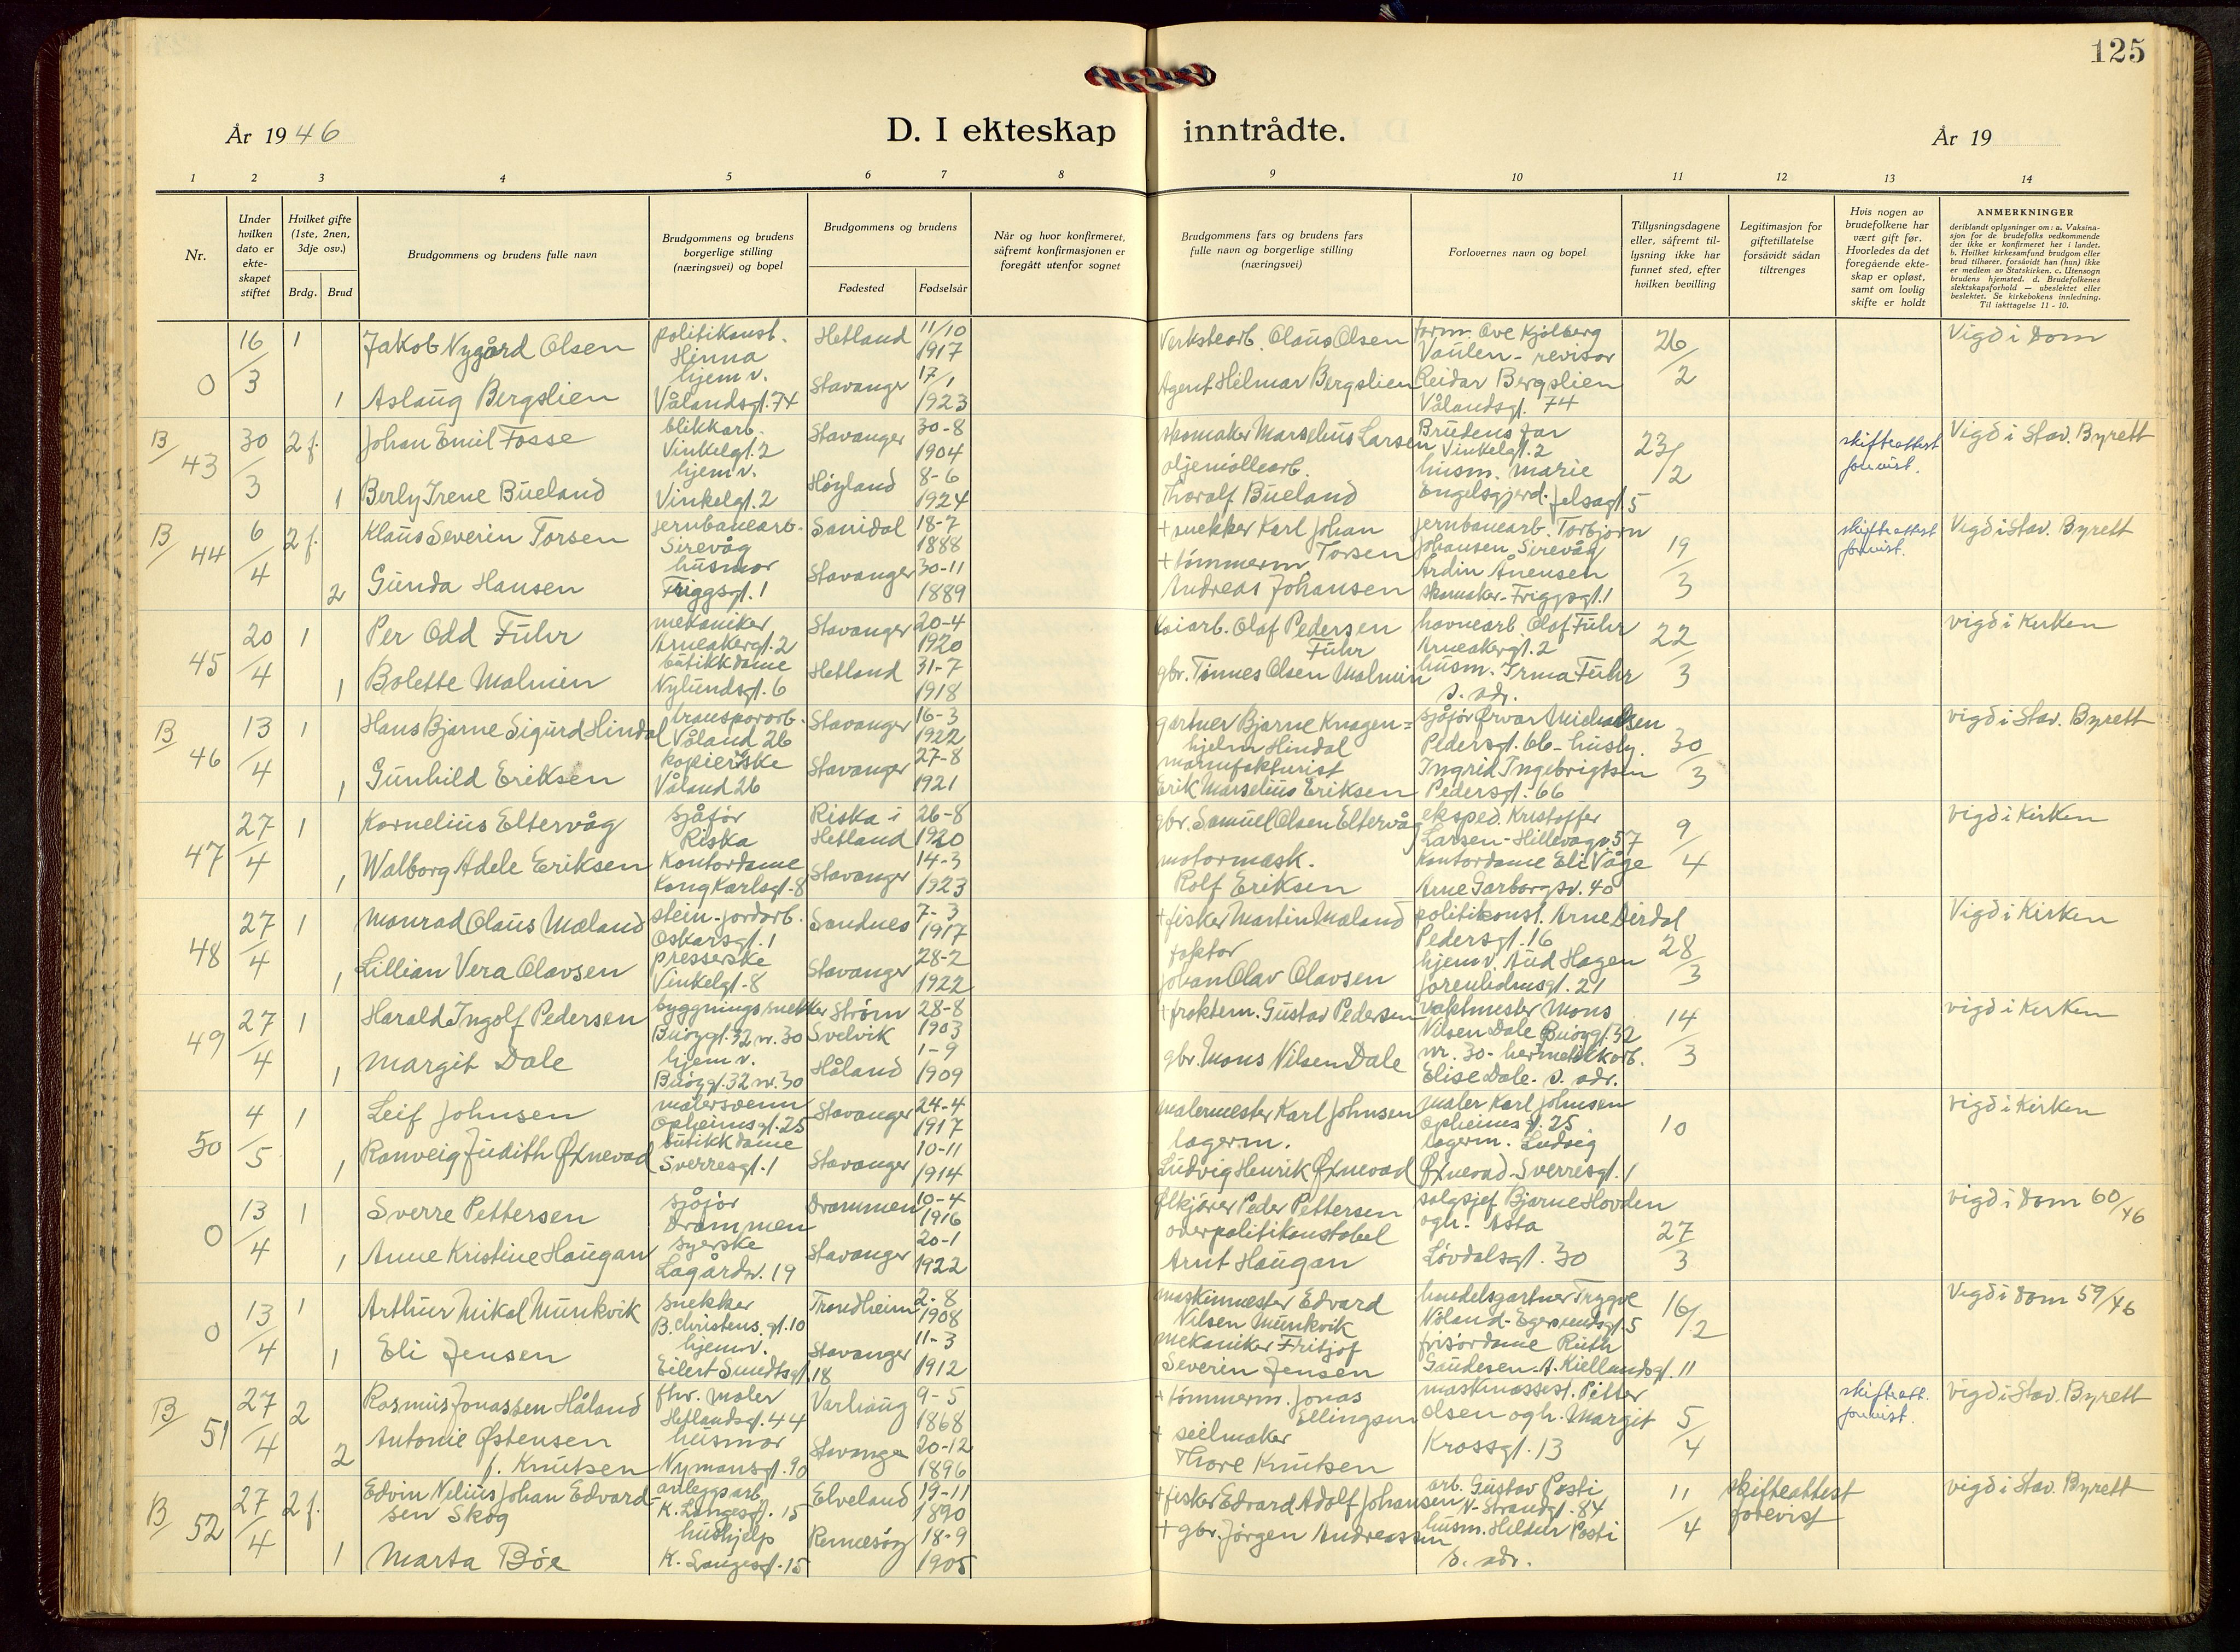 125
År 1946
D. I ekteskap inntrådte.
År 19
1 2 3 4 5 6 7 8 9 10 11 12 13 14
Nr.
Under hvilken dato er ekte- skapet stiftet
Hvilket gifte (1ste, 2nen, 3dje osv.)
Brdg. Brud
Brudgommens og brudens fulle navn
Brudgommens og brudens borgerlige stilling (næringsvei) og bopel
Brudgommens og brudens
Fødested Fødselsår
Når og hvor konfirmeret, såfremt konfirmasjonen er foregått utenfor sognet
Brudgommens fars og brudens fars fulle navn og borgerlige stilling (næringsvei)
Forlovernes navn og bopel
Tillysningsdagene eller, såfremt til- lysning ikke har funnet sted, efter hvilken bevilling
Legitimasjon for giftetillatelse forsåvidt sådan tiltrenges
Hvis nogen av brudefolkene har vært gift før. Hvorledes da det foregående ekte- skap er opløst, samt om lovlig skifte er holdt
ANMERKNINGER
deriblandt oplysninger om: a. Vaksina-
sjon for de brudefolks vedkommende
der ikke er konfirmeret her i landet.
b. Hvilket kirkesamfund brudgom eller
brud tilhører, forsåvidt han (hun) ikke
er medlem av Statskirken. c. Utensogn
brudens hjemsted. d. Brudefolkenes
slektskapsforhold — ubeslektet eller
beslektet. Se kirkebokens innledning.
Til iakttagelse 11 - 10.
0 16/3 1 Jakob Nygård Olsen politikonst. Hinna Hetland 11/10 1917 Verkstearb. Olaus Olsen form. Ove Kjølberg Vaulen - revisor 26/2 Vigd i Dom
1 Aslaug Bergslien hjemv. Vålandsgt. 74 Stavanger 17/1 1923 Agent Hilmar Bergslien Reidar Bergslien Vålandsgt. 74
B/43 30/3 2 f. Johan Emil Fosse blikkarb. Vinkelgt. 2 Stavanger 30-8 1904 skomaker Marselius Larsen Brudens far Vinkelgt. 2 23/2 skifteattest forevist. Vigd i Stav. Byrett
1 Berly Irene Bueland hjemv. Vinkelgt. 2 Høyland 8-6 1924 oljemøllearb. Thoralf Bueland husm. Marie Engelsgjerd. Jelsagt. 5
B/44 6/4 2 f. Klaus Severin Torsen jernbanearb. Sirevåg Sanidal 18-7 1888 + snekker Karl Johan Torsen jernbanearb. Torbjørn Johansen Sirevåg 19/3 skifteattest forevist. Vigd i Stav. Byrett
2 Gunda Hansen husmor Friggsgt. 1 Stavanger 30-11 1889 + tømmerm. Andreas Johansen Ardin Anensen skomaker - Friggsgt. 1
45 20/4 1 Per Odd Führ mekaniker Arneakergt. 2 Stavanger 20-4 1920 kaiarb. Olaf Pedersen Führ havnearb. Olaf Führ Arneakergt. 2 22/3 vigd i Kirken
1 Bolette Malmin butikkdame Nylundsgt. 6 Hetland 31-7 1918 gbr. Tønnes Olsen Malmin husm. Irma Führ s. adr.
B/46 13/4 1 Hans Bjarne Sigurd Hindal transporarb. Våland 26 Stavanger 16-3 1922 gartner Bjarne Knagen= hjelm Hindal sjåfør Ørvar Michaelsen Pedersgt. 66 - husby. 30/3 vigd i Stav. Byrett
1 Gunhild Eriksen kopierske Våland 26 Stavanger 27-8 1921 manufakturist Erik Marselius Eriksen Ingrid Ingebrigtsen Pedersgt. 66
47 27/4 1 Kornelius Eltervåg sjåfør Riska Riska i Hetland 26-8 1920 gbr. Samuel Olsen Eltervåg eksped. Kristoffer Larsen - Hillevågv. 57 9/4 vigd i Kirken
1 Walborg Adele Eriksen Kontordame Kong Karlsgt. 8 Stavanger 14-3 1923 motormask. Rolf Eriksen Kontordame Eli Våge Arne Garborgsv. 40
48 27/4 1 Monrad Olaus Mæland stein-jordarb. Oskarsgt. 1 Sandnes 7-3 1917 + fisker Martin Mæland politikonst. Arne Dirdal Pedersgt. 16 28/3 Vigd i Kirken
1 Lillian Vera Olavsen presserske Vinkelgt. 8 Stavanger 28-2 1922 faktor Johan Olav Olavsen hjemv. Aud Hagen Jorenholmsgt. 21
49 27/4 1 Harald Ingolf Pedersen byggningssnekker Buøygt. 32 nr. 30 Strøm Svelvik 28-8 1903 + froktem. Gustav Pedersen vaktmester Mons Nilsen Dale Buøygt. 32 14/3 vigd i Kirken
1 Margit Dale hjemv. Buøygt. 32 nr. 30 Håland 1-9 1909 gbr. Mons Nilsen Dale nr. 30 - hermetikkarb. Elise Dale. s. adr.
50 4/5 1 Leif Johnsen malersvenn Opheimsgt. 25 Stavanger 24-4 1917 malermester Karl Johnsen maler Karl Johnsen Opheimsgt. 25 10 vigd i Kirken
1 Ranveig Judith Øxnevad butikkdame Sverresgt. 1 Stavanger 10-11 1914 lagerm. Ludvig Henrik Øxnevad lagerm. Ludvig Øxnevad - Sverresgt. 1
0 13/4 1 Sverre Pettersen sjåfør Drammen Drammen 10-4 1916 ølkjører Peder Pettersen salgsjef Bjarne Hovden 27/3 vigd i Dom 60/46
1 Anne Kristine Haugan syerske Lagårdsv. 19 Stavanger 20-1 1922 overpolitikonstabel Arnt Haugan ogh. Asta Løvdalsgt. 30
0 13/4 1 Arthur Mikal Munkvik snekker B. Christens. gt. 10 Trondheim 2-8 1908 maskinmester Edvard Nilsen Munkvik handelsgartner Trygve Nåland - Egersundsgt. 5 16/2 Vigd i Dom 59/46
1 Eli Jensen hjemv. Eilert Sundtsgt. 18 Stavanger 11-3 1912 mekaniker Fritjof Severin Jensen frisørdame Ruth Gaudesen. A. Kiellandsgt. 11
B/51 27/4 2 Rasmus Jonassen Håland fhv. maler Hetlandsgt. 44 Varhaug 9-5 1868 + tømmerm. Jonas Ellingsen maskinassist. Pitter Olsen ogh. Margit 5/4 skifteatt. forevist. vigd i Stav. Byrett
2 Antonie Østensen f. Knutsen husmor Nymansgt. 90 Stavanger 20-12 1896 + seilmaker Thore Knutsen Krossgt. 13
B/52 27/4 2 f. Edvin Nelius Johan Edvard- sen Skog anleggsarb. K. Langesgt. 15 Elveland 19-11 1890 + fisker Edvard Adolf Johansen arb. Gustav Posti N-Strandgt. 84 11/4 skifteattest forevist vigd i Stav. Byrett
1 Marta Bøe hushjelp K. Langesgt. 15 Rennesøy 18-9 1905 + gbr. Jørgen Andreassen husm. Hildur Posti s. adr.